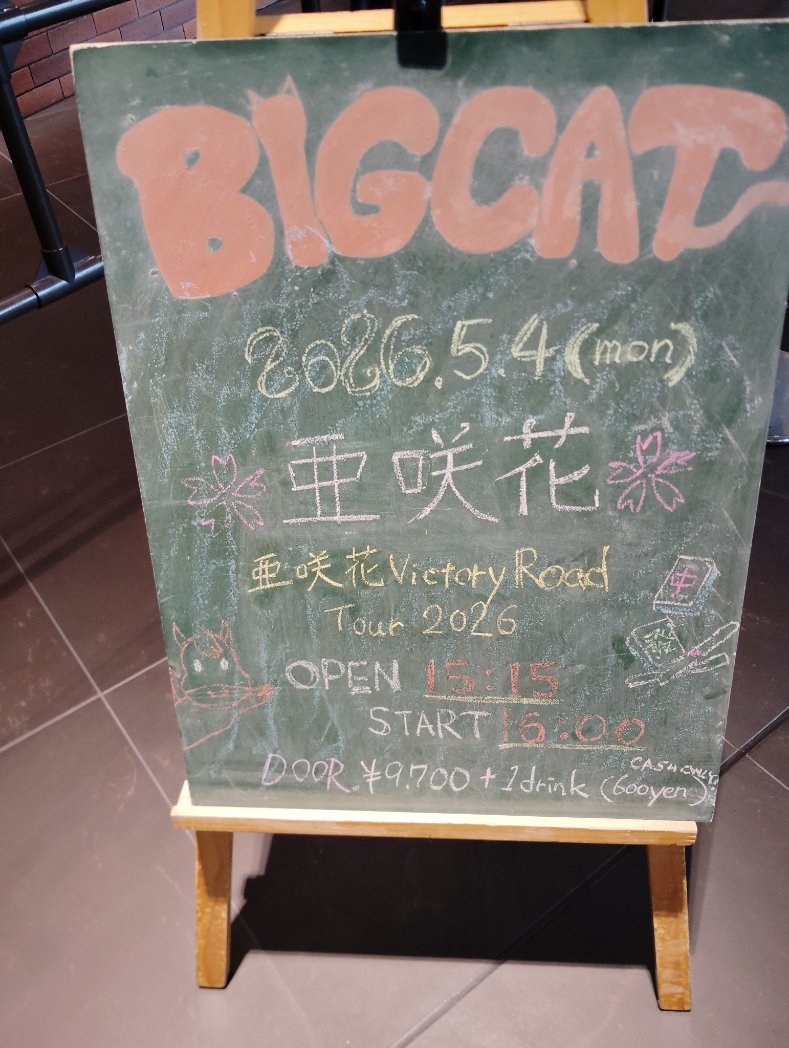 BIGCAT
2026.5.4(mon)
亜咲花
亜咲花 Victory Road
Tour 2026
中
發
OPEN 15:15
START 16:00
CASH ONLY
DOOR. ¥9.700 + 1drink (600yen)